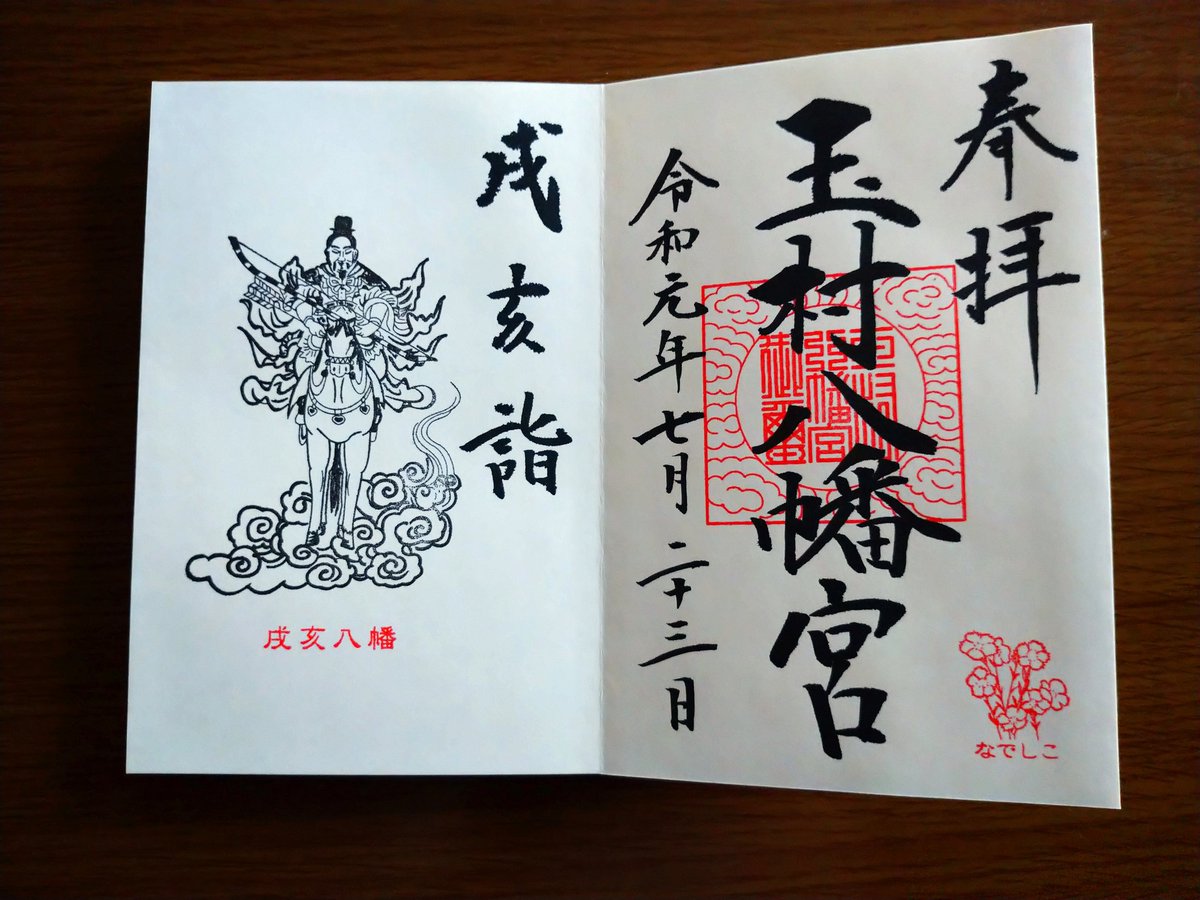 奉拝
玉村八幡宮
令和元年七月二十三日
なでしこ
戌亥詣
戌亥八幡